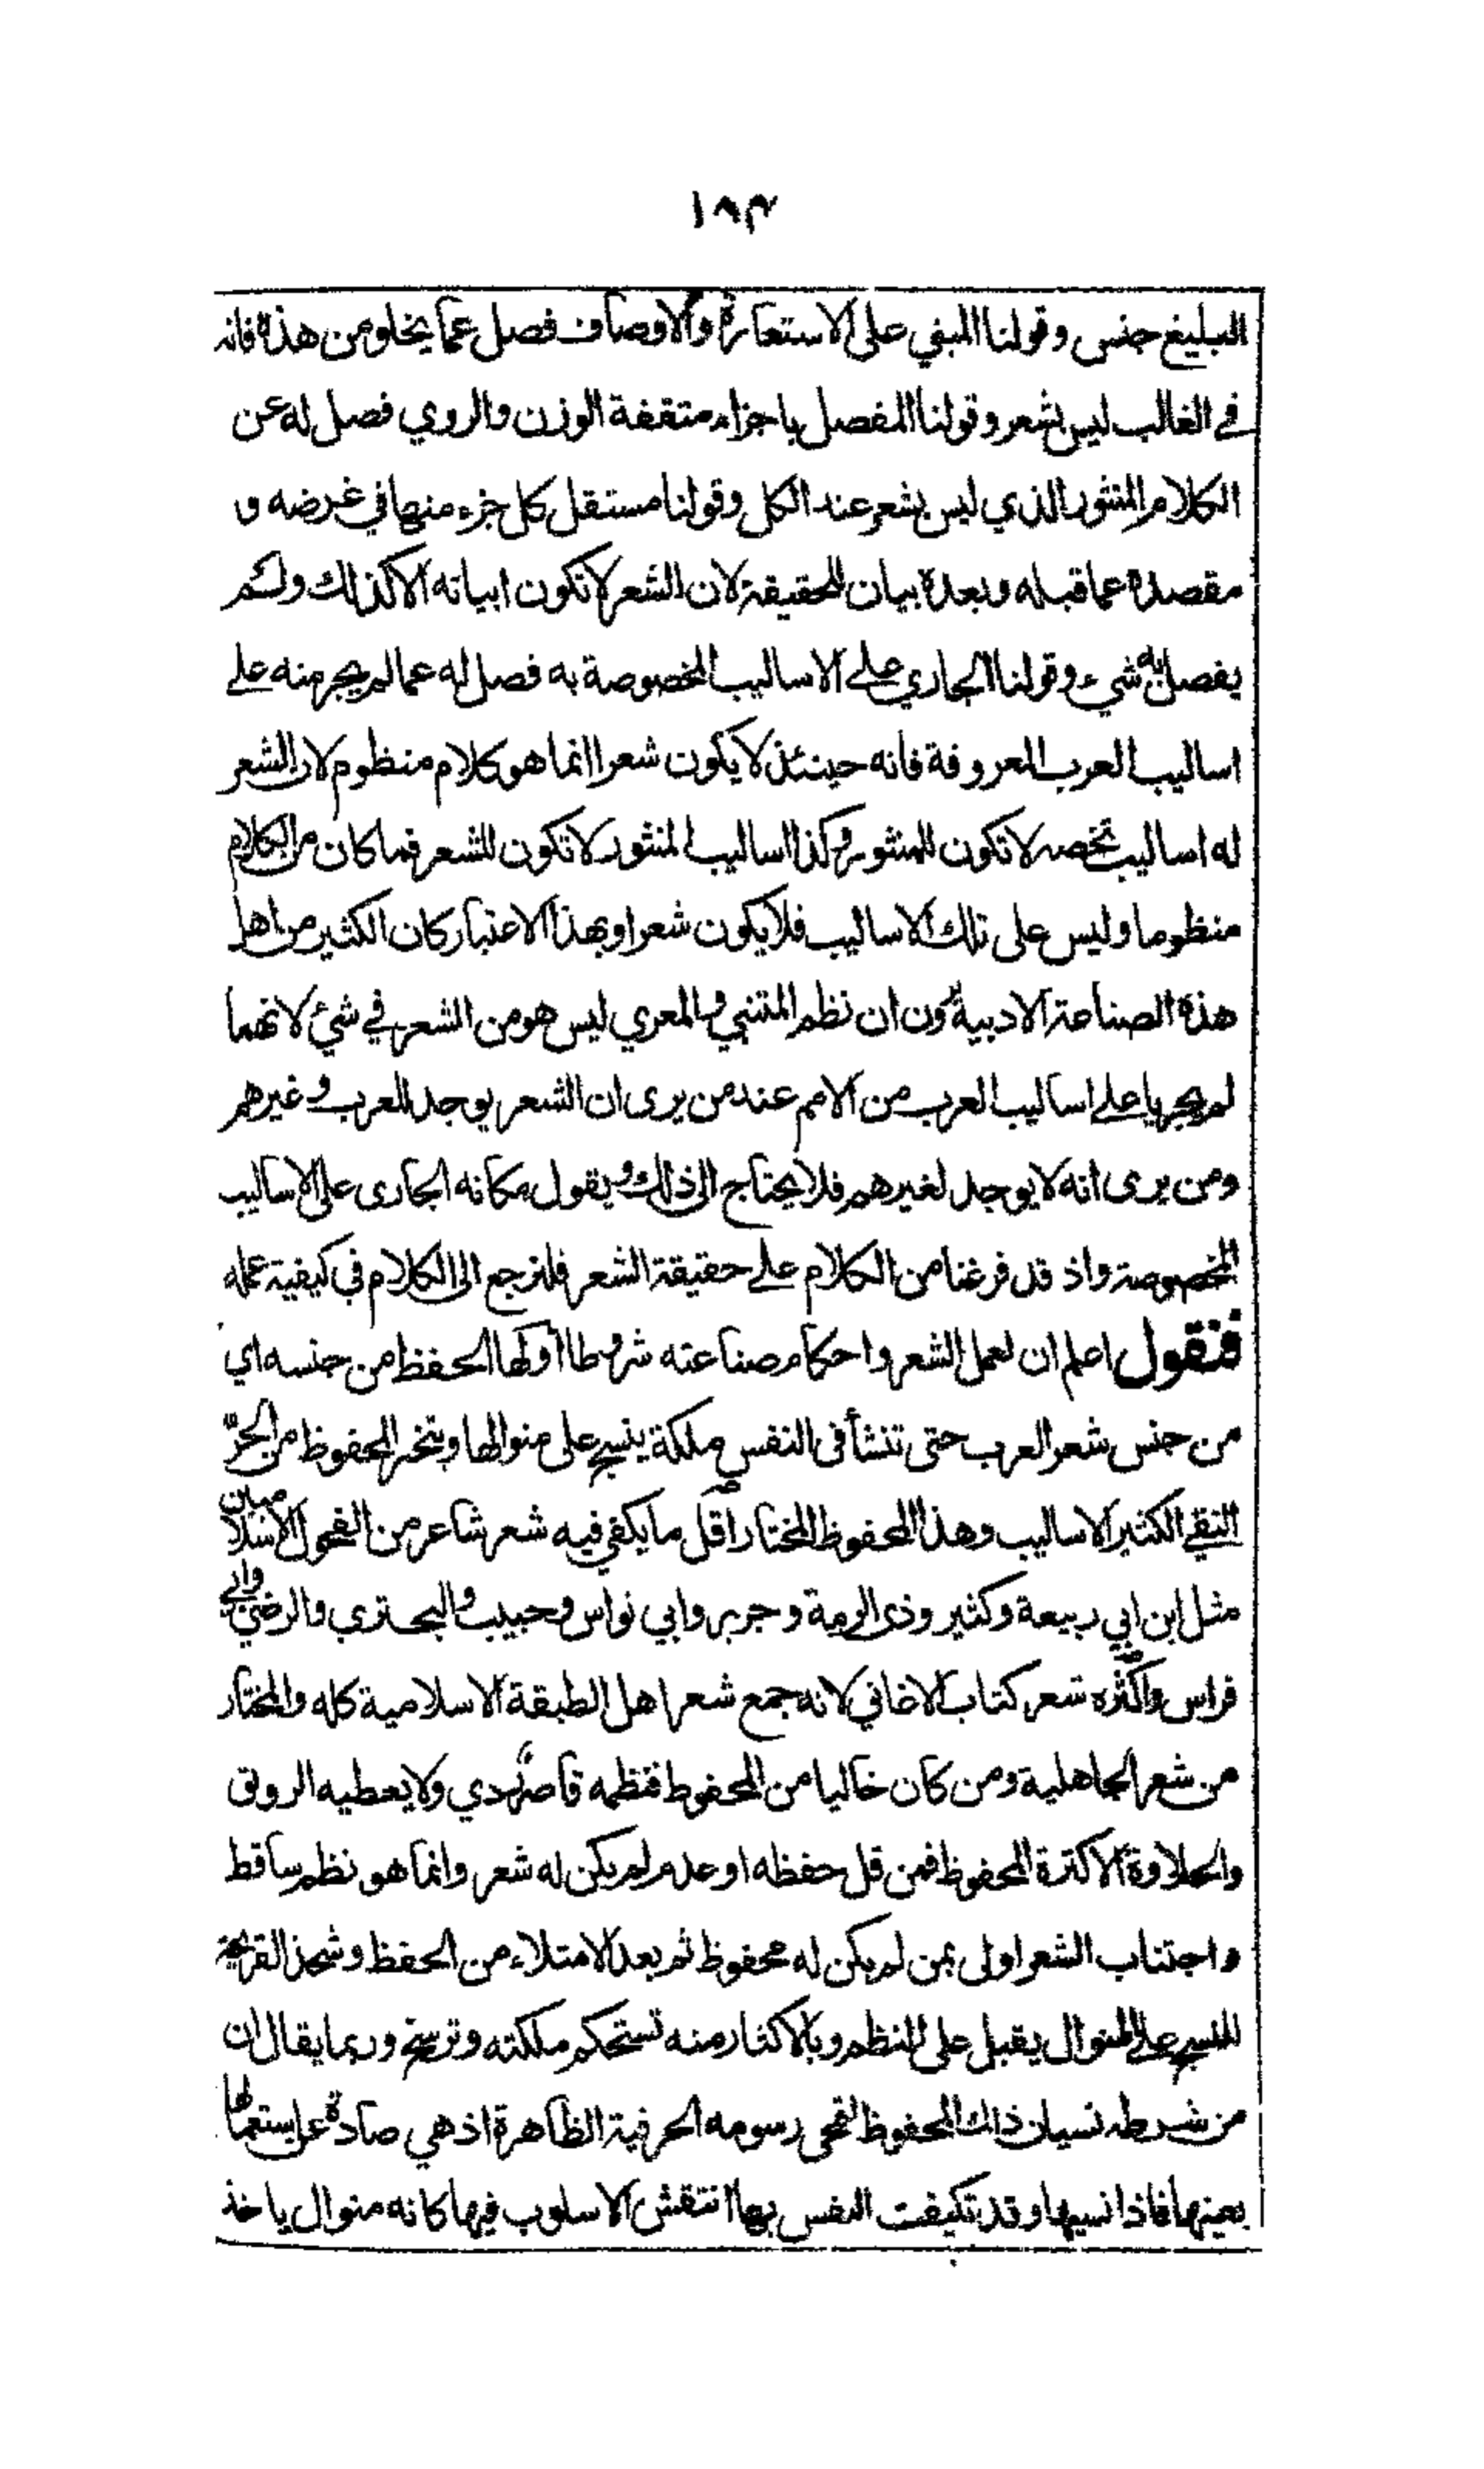 ١٨٣
البليغ جنس وقولنا المبني على الاستعارة والاوصاف فصل عما يخلو من هذه فانه
في الغالب ليس بشعر وقولنا المفصل باجزاء متفقة الوزن والروي فصل له عن
الكلام المنثور الذي ليس بشعر عند الكل وقولنا مستقل كل جزء منها في غرضه و
مقصده عما قبله وبعده بيان للحقيقة لان الشعر لا تكون ابياته الا كذلك ولم
يفصل به شيء وقولنا الجاري على الاساليب المخصوصة به فصل له عما لم يجر منه على
اساليب العرب المعروفة فانه حينئذ لا يكون شعرا انما هو كلام منظوم لان الشعر
له اساليب تخصه لا تكون للمنثور وكذا اساليب المنثور لا تكون للشعر فما كان من الكلام
منظوما وليس على تلك الاساليب فلا يكون شعرا وبهذا الاعتبار كان الكثير من اهل
هذه الصناعة الادبية يرون ان نظم المتنبي والمعري ليس هو من الشعر في شئ لانهما
لم يجريا على اساليب العرب من الامم عند من يرى ان الشعر يوجد للعرب وغيرهم
ومن يرى انه لا يوجد لغيرهم فلا يحتاج الى ذلك ويقول مكانه الجارى على الاساليب
المخصوصة واذ قد فرغنا من الكلام على حقيقة الشعر فلنرجع الى الكلام في كيفية عمله
فنقول اعلم ان لعمل الشعر واحكام صناعته شروطا اولها الحفظ من جنسه اي
من جنس شعر العرب حتى تنشأ فى النفس ملكة ينسج على منوالها ويتخير المحفوظ من الحرّ
النقي الكثير الاساليب وهذا المحفوظ المختار اقل ما يكفي فيه شعر شاعر من الفحول الاسلاميين
مثل ابن ابي ربيعة وكثير وذى الرمة وجرير وابي نواس وحبيب والبحتري والرضي وابي
فراس واكثره شعر كتاب الاغاني لانه جمع شعر اهل الطبقة الاسلامية كله والمختار
من شعر الجاهلية ومن كان خاليا من المحفوظ فنظمه قاصر ردي ولا يعطيه الرونق
والحلاوة الا كثرة المحفوظ فمن قل حفظه او عدم لم يكن له شعر وانما هو نظم ساقط
واجتناب الشعر اولى بمن لم يكن له محفوظ ثم بعد الامتلاء من الحفظ وشحذ القريحة
للنسج على المنوال يقبل على النظم وبالاكثار منه تستحكم ملكته وترسخ وربما يقال ان
من شرطه نسيان ذلك المحفوظ لتمحى رسومه الحرفية الظاهرة اذ هي صادة عن استعمالها
بعينها فاذا نسيها وقد تكيفت النفس بها انتقش الاسلوب فيها كانه منوال ياخذ